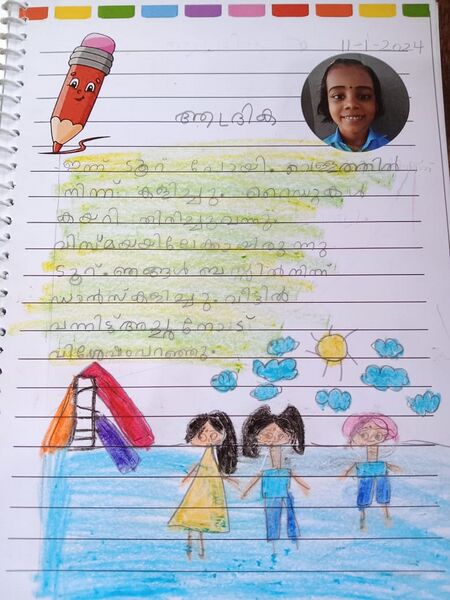 11-1-2024
ആദദിക
ഇന്ന് ടൂറ് പോയി. വെള്ളത്തിൽ
നിന്ന് കളിച്ചു. റൈഡുകൾ
കയറി തിരിച്ചുവന്നു.
വിസ്മയയിലേക്കായിരുന്നു
ടൂറ്. ഞങ്ങൾ ബസ്സിൽനിന്ന്
ഡാൻസ് കളിച്ചു. വീട്ടിൽ
വന്നിട്ട് അച്ഛനോട്
വിശേഷംപറഞ്ഞു.